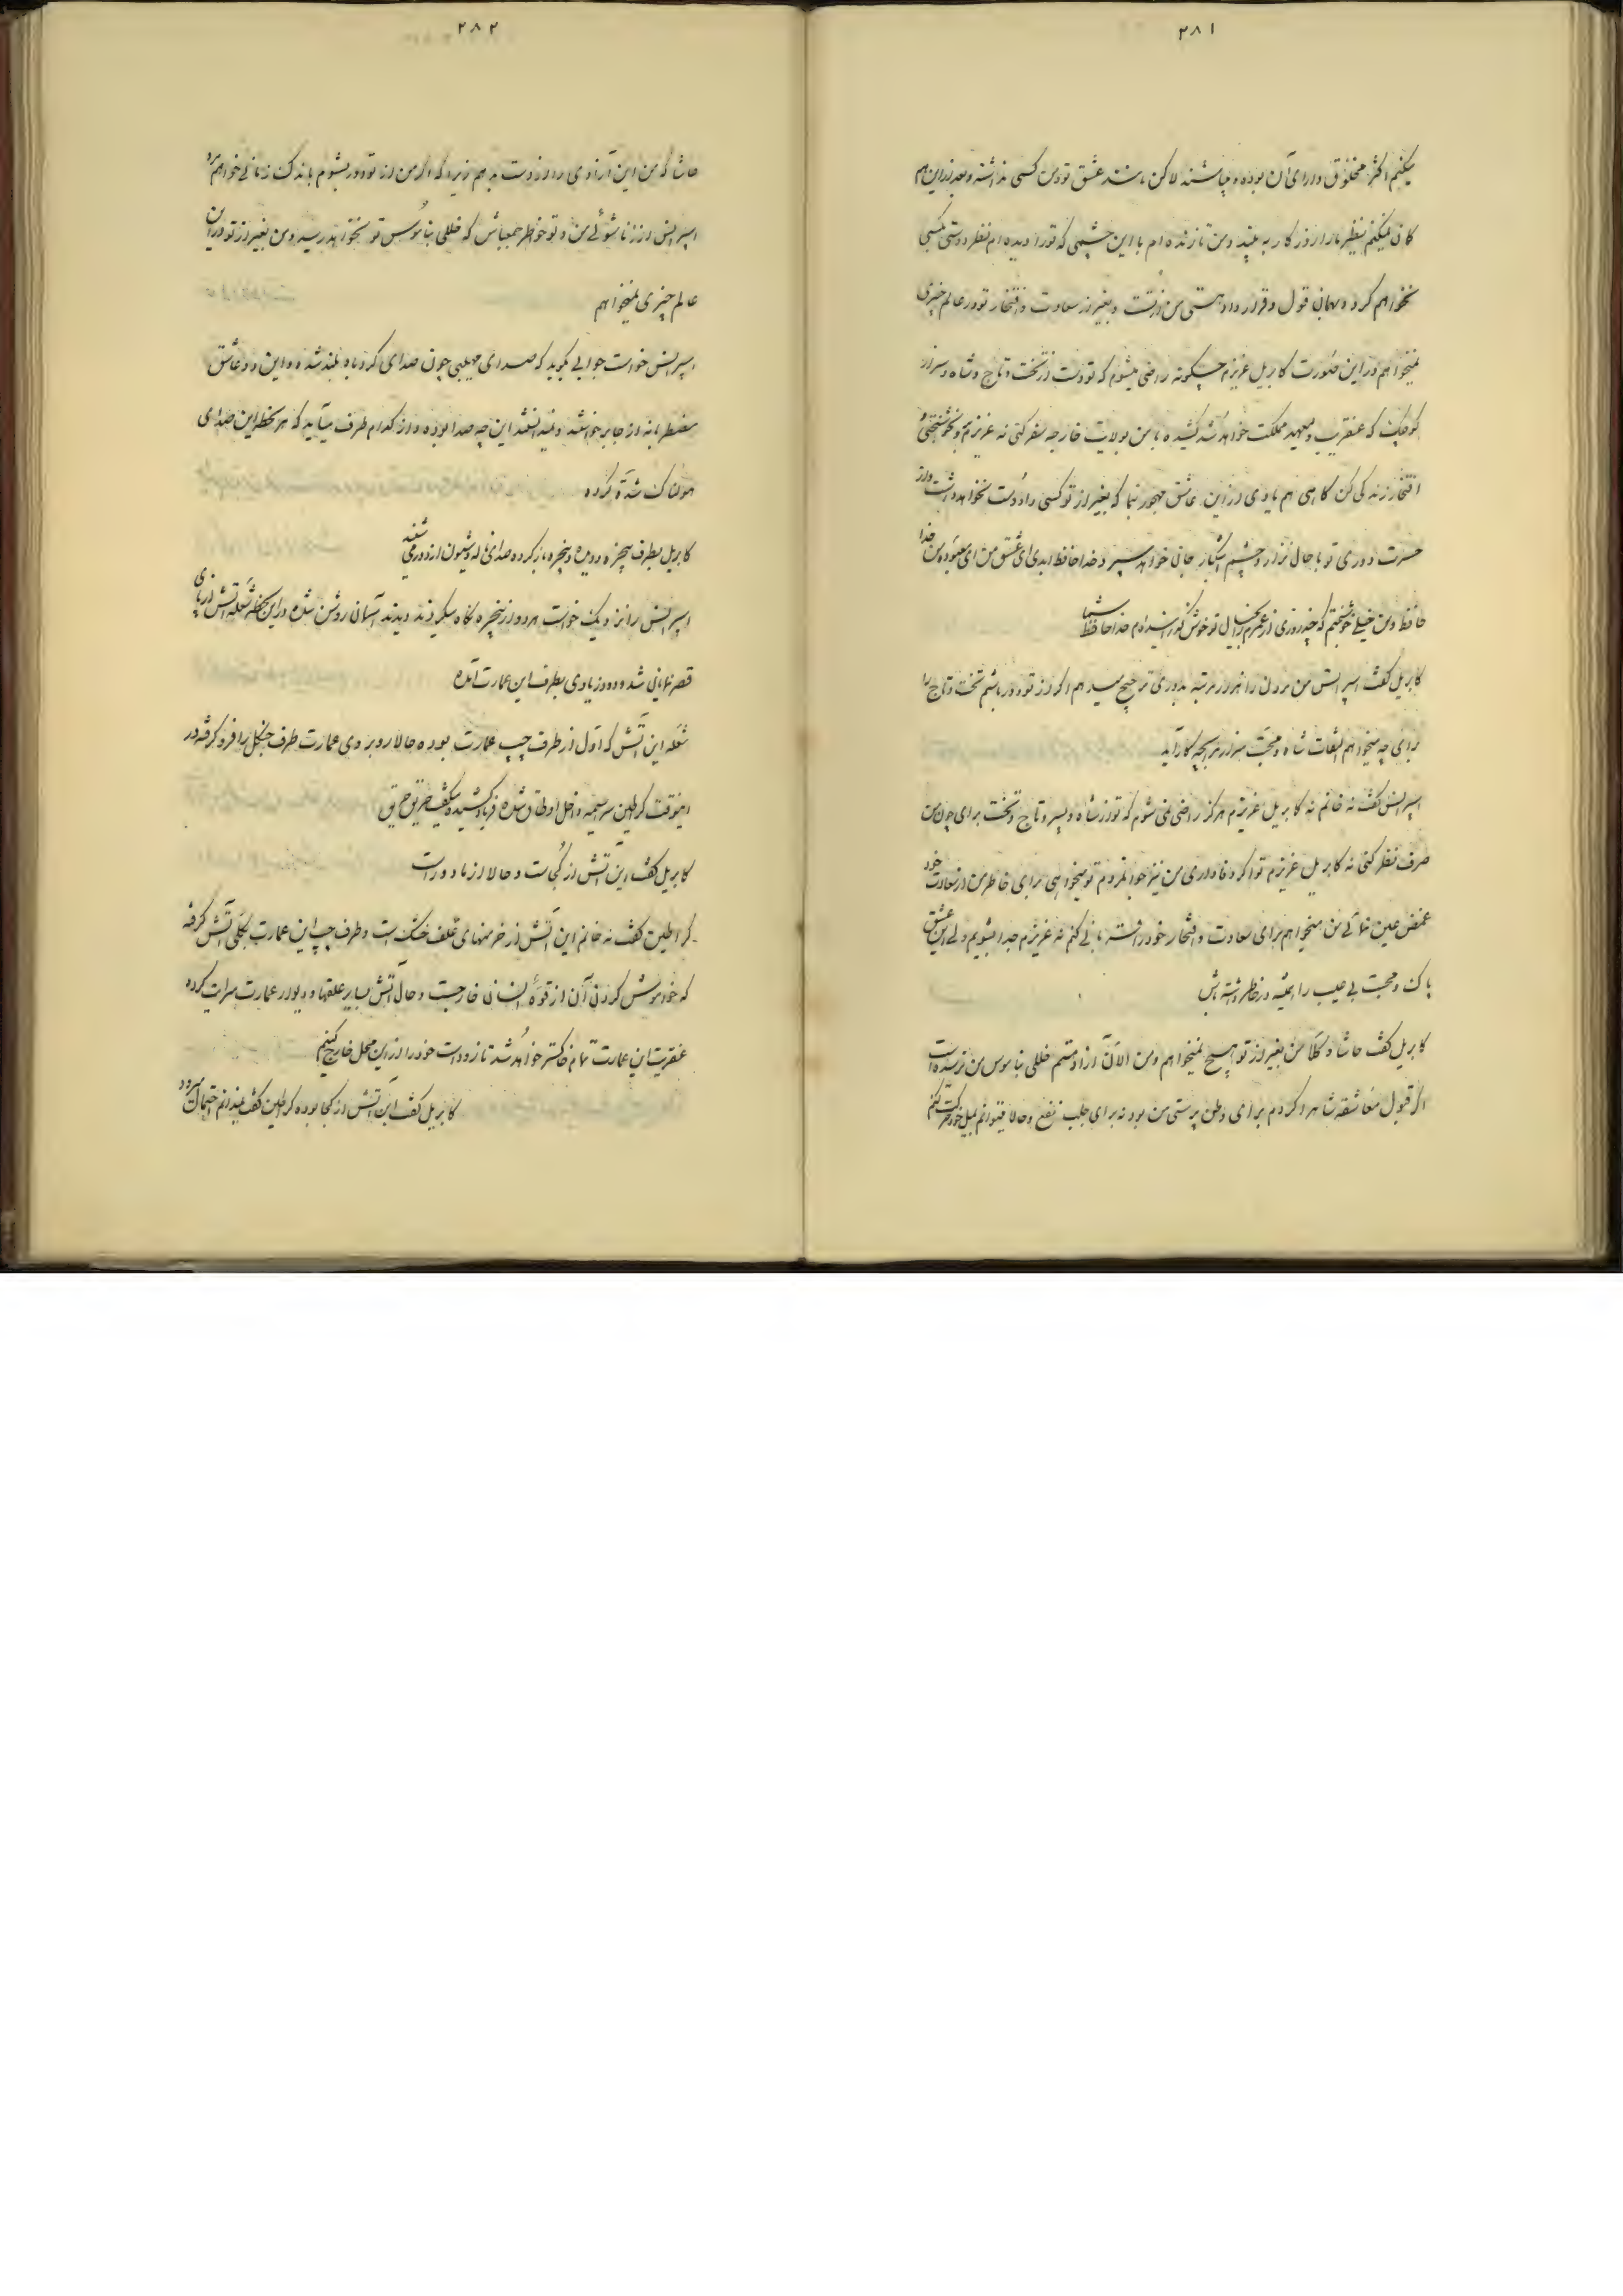 ۲۸۱
میکنم اکثر مخلوق دارای آن بوده و میباشند لاکن مانند عشق تو و من کسی نداشته و بعد از این هم
گمان نمیکنم نظیر ما را روزگار به بیند و من تا زنده‌ام با این چشمی که تو را دیده‌ام نظر دوستی بکسی
نخواهم کرد و بهمان قول و قرار داد هستی من از تست و بغیر از سعادت و افتخار تو در عالم چیزی
نمیخواهم در این صورت کابریل عزیزم چگونه راضی میشوم که تو دست از تخت و تاج و شاه و
که عنقریب ولیعهد مملکت خواهد شد کشیده با من بولایت خارجه سفر کنی نه عزیزم
افتخار زندگی کن گاهی هم یادی از این عاشق مهجور نما که بغیر از تو کسی را دوست نخواهد داشت و از
حسرت دوری تو با حال نزار و چشم اشکبار جان خواهد سپرد خداحافظ ابدی ای عشق من ای معبوده من خدا
حافظ و من خیلی خوشبختم که چند روزی از عمرم بخیال تو خوش گذرانیده‌ام خداحافظ شما
کابریل گفت اسپرانس من مردن را هزار مرتبه بدوری ترجیح میدهم اگر از تو دور باشم تخت و تاج را
برای چه میخواهم التفات شاه و محبت بچه کار آید
اسپرانس گفت نه خانم نه کابریل عزیزم هرگز راضی نمی شوم که تو از شاه و پسر و تاج و تخت برای چون من
صرف نظر کنی نه کابریل عزیزم تو اگر وفاداری من نیز جوانمردم تو میخواهی برای خاطر من از سعادت خود
غمض عین نمائی من میخواهم برای سعادت و افتخار خود را کنم نه عزیزم جدا بشویم ولی این عشق
پاک و محبت بی عیب را همیشه در خاطر داشته باش
کابریل گفت حاشا و کلا من بغیر از تو هیچ نمیخواهم و من الآن آزاد هستم خللی بناموس من نرسیده است
اگر قبول معاشقه شاه را کردم برای وطن پرستی من بود نه برای جلب نفع و حالا میتوانم بمیل خود حرکت کنم
۲۸۲
حاشا که من این آزادی را از دست بدهم زیرا که اگر من از تو دور بشوم باندک زمانی خواهم مرد
اسپرانس از زناشوئی من و تو خواطر جمع باش که خللی بناموس تو نخواهد رسید و من بغیر از تو در این
عالم چیزی نمیخواهم
اسپرانس خواست جوابی بگوید که صدای مهیبی چون صدای گردباد بلند شده و این دو عاشق
مضطربانه از جا برخواستند و ندانستند این چه صدا بوده و از کدام طرف میآید که هر لحظه این صدای
هولناک شدت کرده
کابریل بطرف پنجره دویده و پنجره باز کرده صدای ناله و شیون از دور می شنید
اسپرانس را نزدیک خواست هر دو از پنجره نگاه میکردند دیدند آسمان روشن شده در این لحظه شعله آتش از
قصر نمایان شد و دود زیادی بطرف این عمارت آمده
شعله این آتش که اول از طرف چپ عمارت بوده حالا روبروی عمارت طرف جنگل را فرو گرفته در
اینوقت گراطین سرسیمه داخل اوطاق شده فریاد کشیده میگفت حریق حریق
کابریل گفت این آتش از کجاست و حالا از ما دور است
گراطین گفت نه خانم این آتش از خرمنهای علف خشک است و طرف چپ این عمارت بکلی آتش گرفته
که خواموش کردن آن از قوه انسانی خارجست و حال آتش بسایر علفها و دیوار عمارت سرایت کرده
عنقریب این عمارت تمام خاکستر خواهد شد تا زود است خود را از این محل خارج کنیم
کابریل گفت این آتش از کجا بوده گراطین گفت نمیدانم احتمال میرود